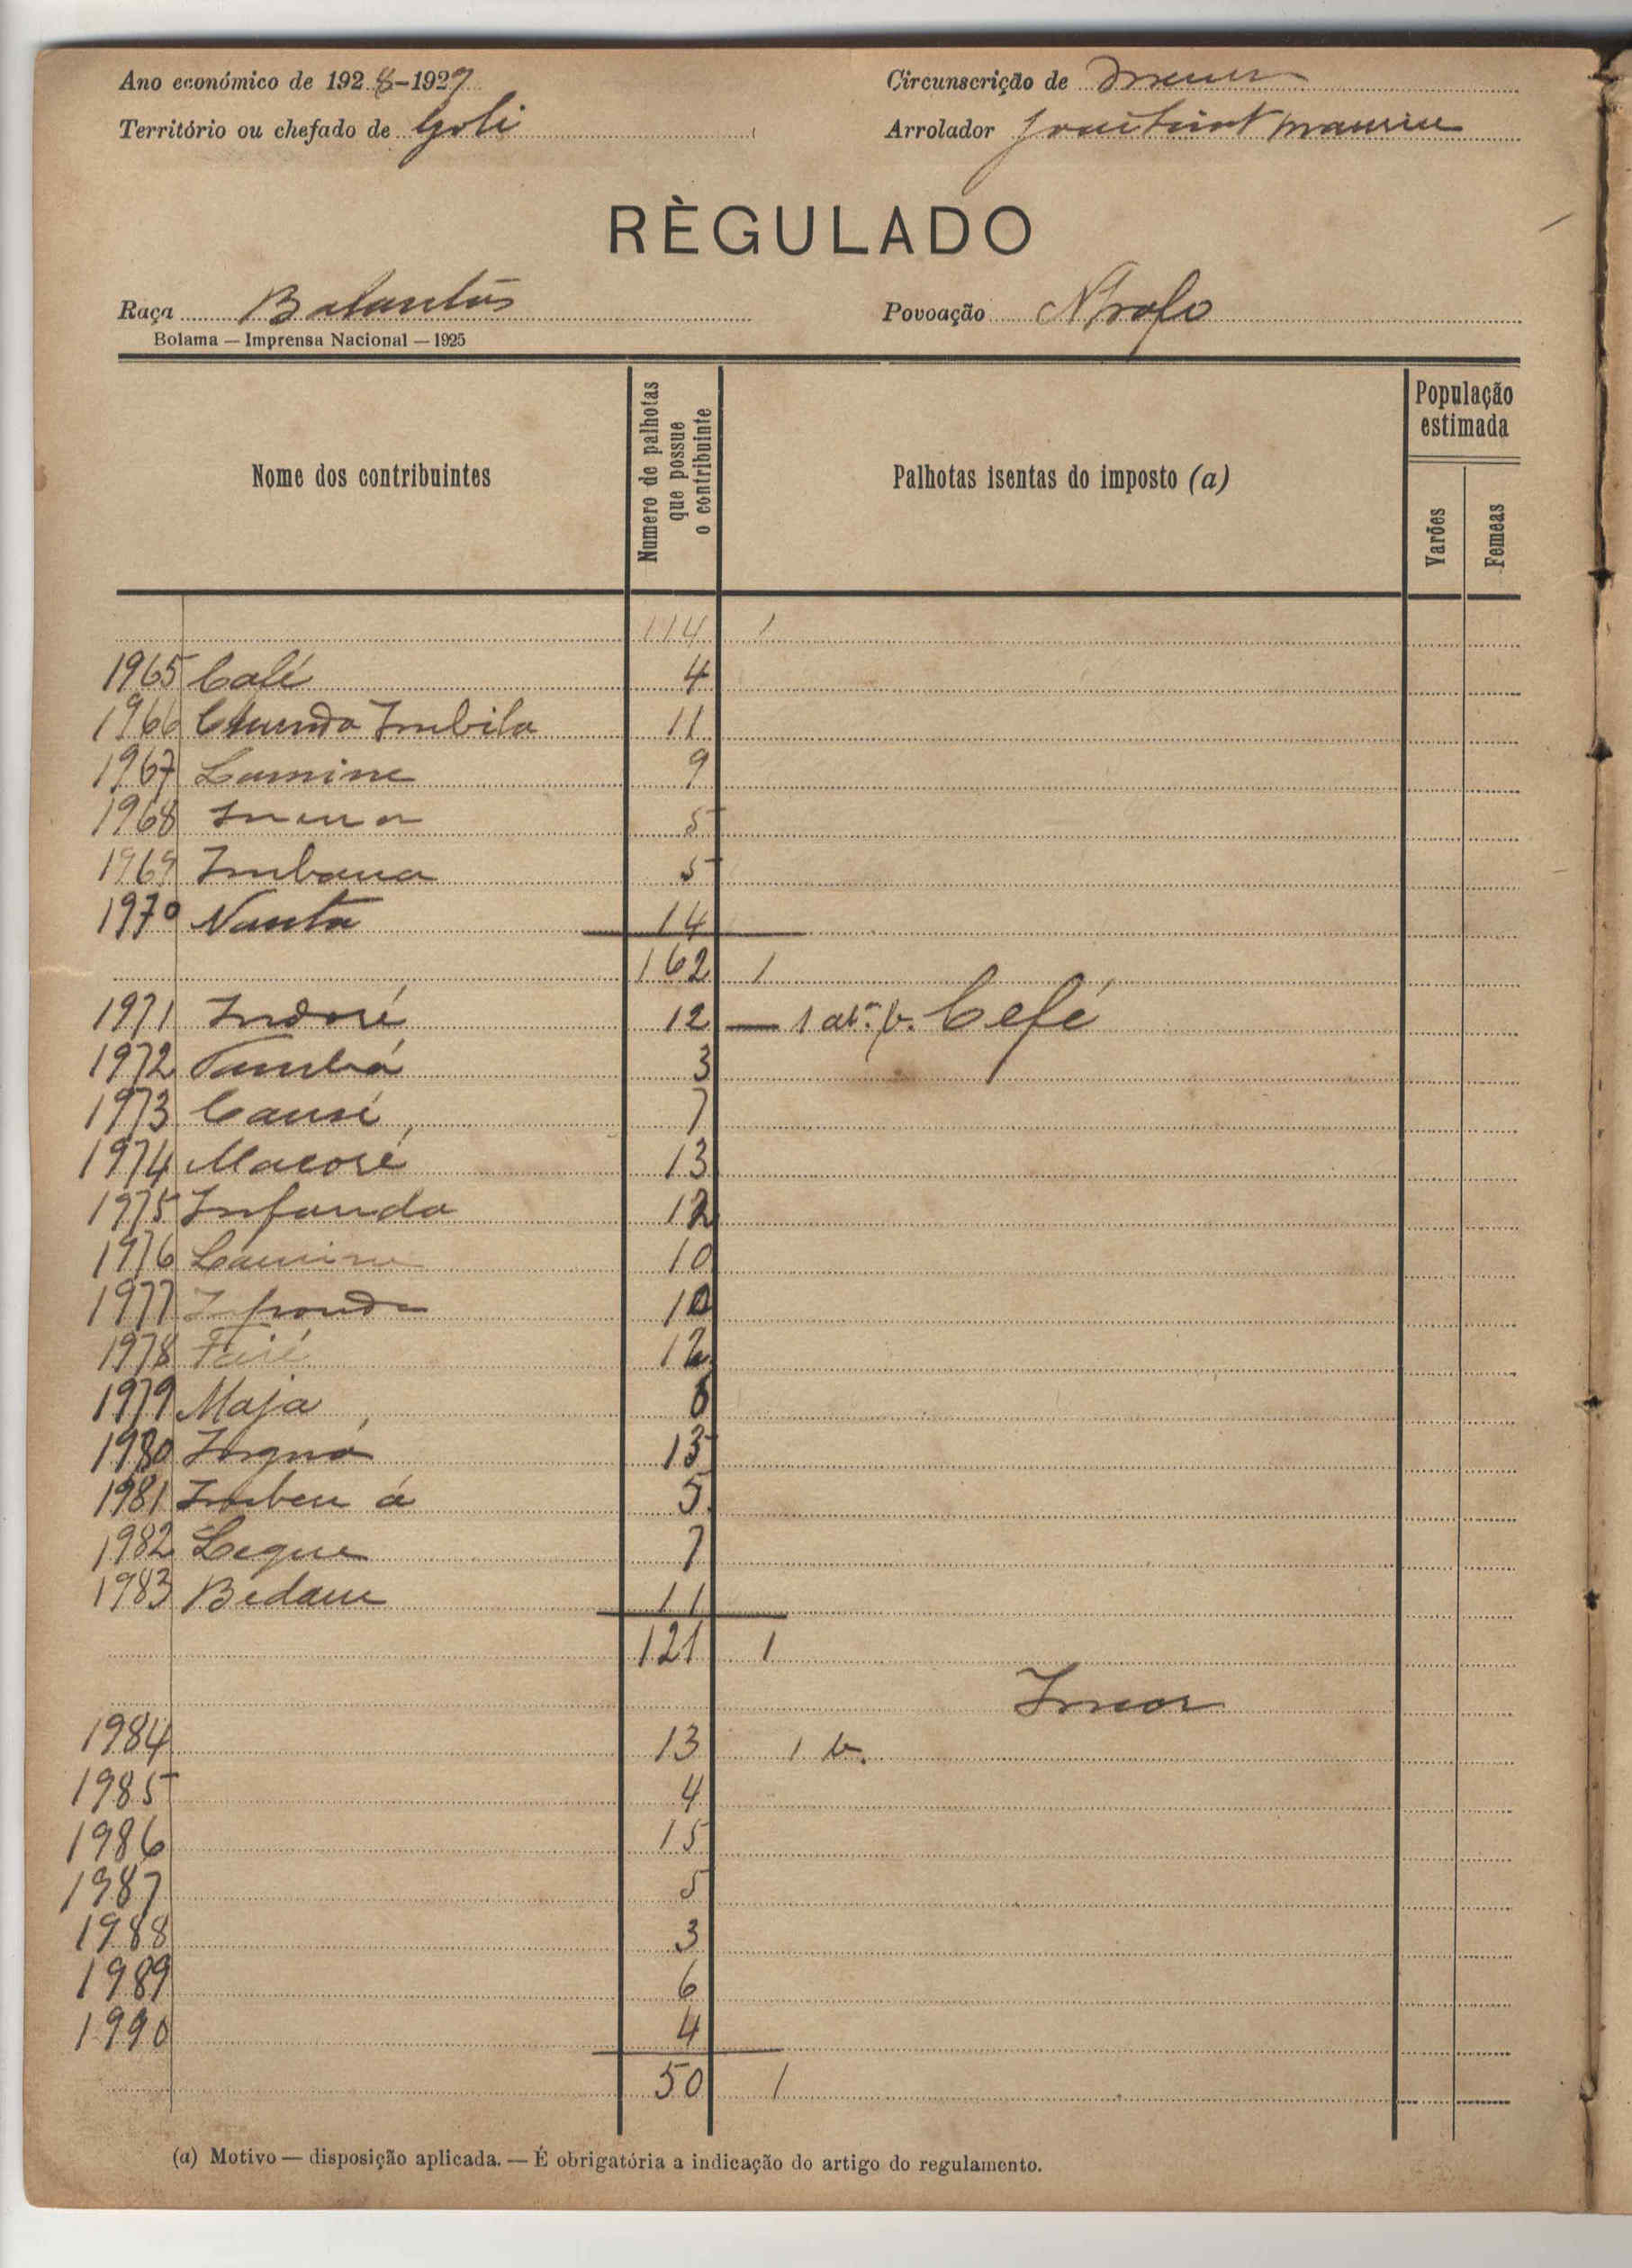 Ano económico de 1928-1929
Circunscrição de
Território ou chefado de Goli
Arrolador
RÈGULADO
Raça Balantas
Povoação
Bolama — Imprensa Nacional — 1925
Nome dos contribuintes
Numero de palhotas que possue o contribuinte
Palhotas isentas do imposto (a)
População estimada
Varões
Femeas
114 1
1965 Calé 4
1966 Imbila 11
1967 Lamine 9
1968 5
1969 Imbana 5
1970 Nanta 14
162 1
1971 Indoré 12 — 1 Cefé
1972 Tumbá 3
1973 7
1974 Macoré 13
1975 Infanda 12
1976 Lamine 10
1977 10
1978 12
1979 Maja
1980 Ingná
1981 á 5
1982 Leque 7
1983 Bedam 11
121 1
1984 13 1 v.
1985 4
1986 15
1987 5
1988 3
1989 6
1990 4
50 1
(a) Motivo — disposição aplicada. — É obrigatória a indicação do artigo do regulamento.